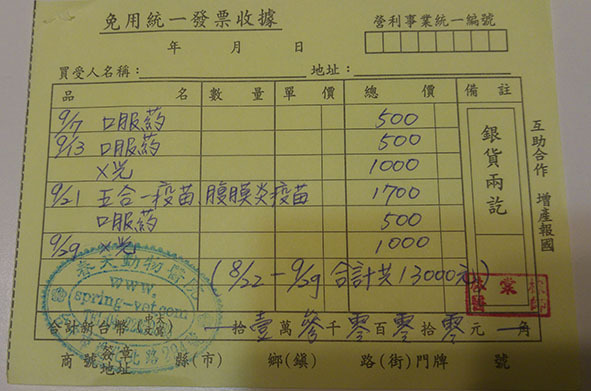 免用統一發票收據
營利事業統一編號
年 月 日
買受人名稱： 地址：
品 名 數 量 單 價 總 價 備 註
9/7 口服药 500
9/13 口服药 500
X光 1000
9/21 五合一疫苗、腹膜炎疫苗 1700
口服药 500
9/29 X光 1000
(8/22－9/29 合計共13000元)
銀貨兩訖
互助合作 增產報國
春天動物醫院
www.
spring-vet.com
合計新台幣 拾壹萬參千零百零拾零元 角
商號簽章地址 縣(市) 鄉(鎮) 路(街)門牌 號